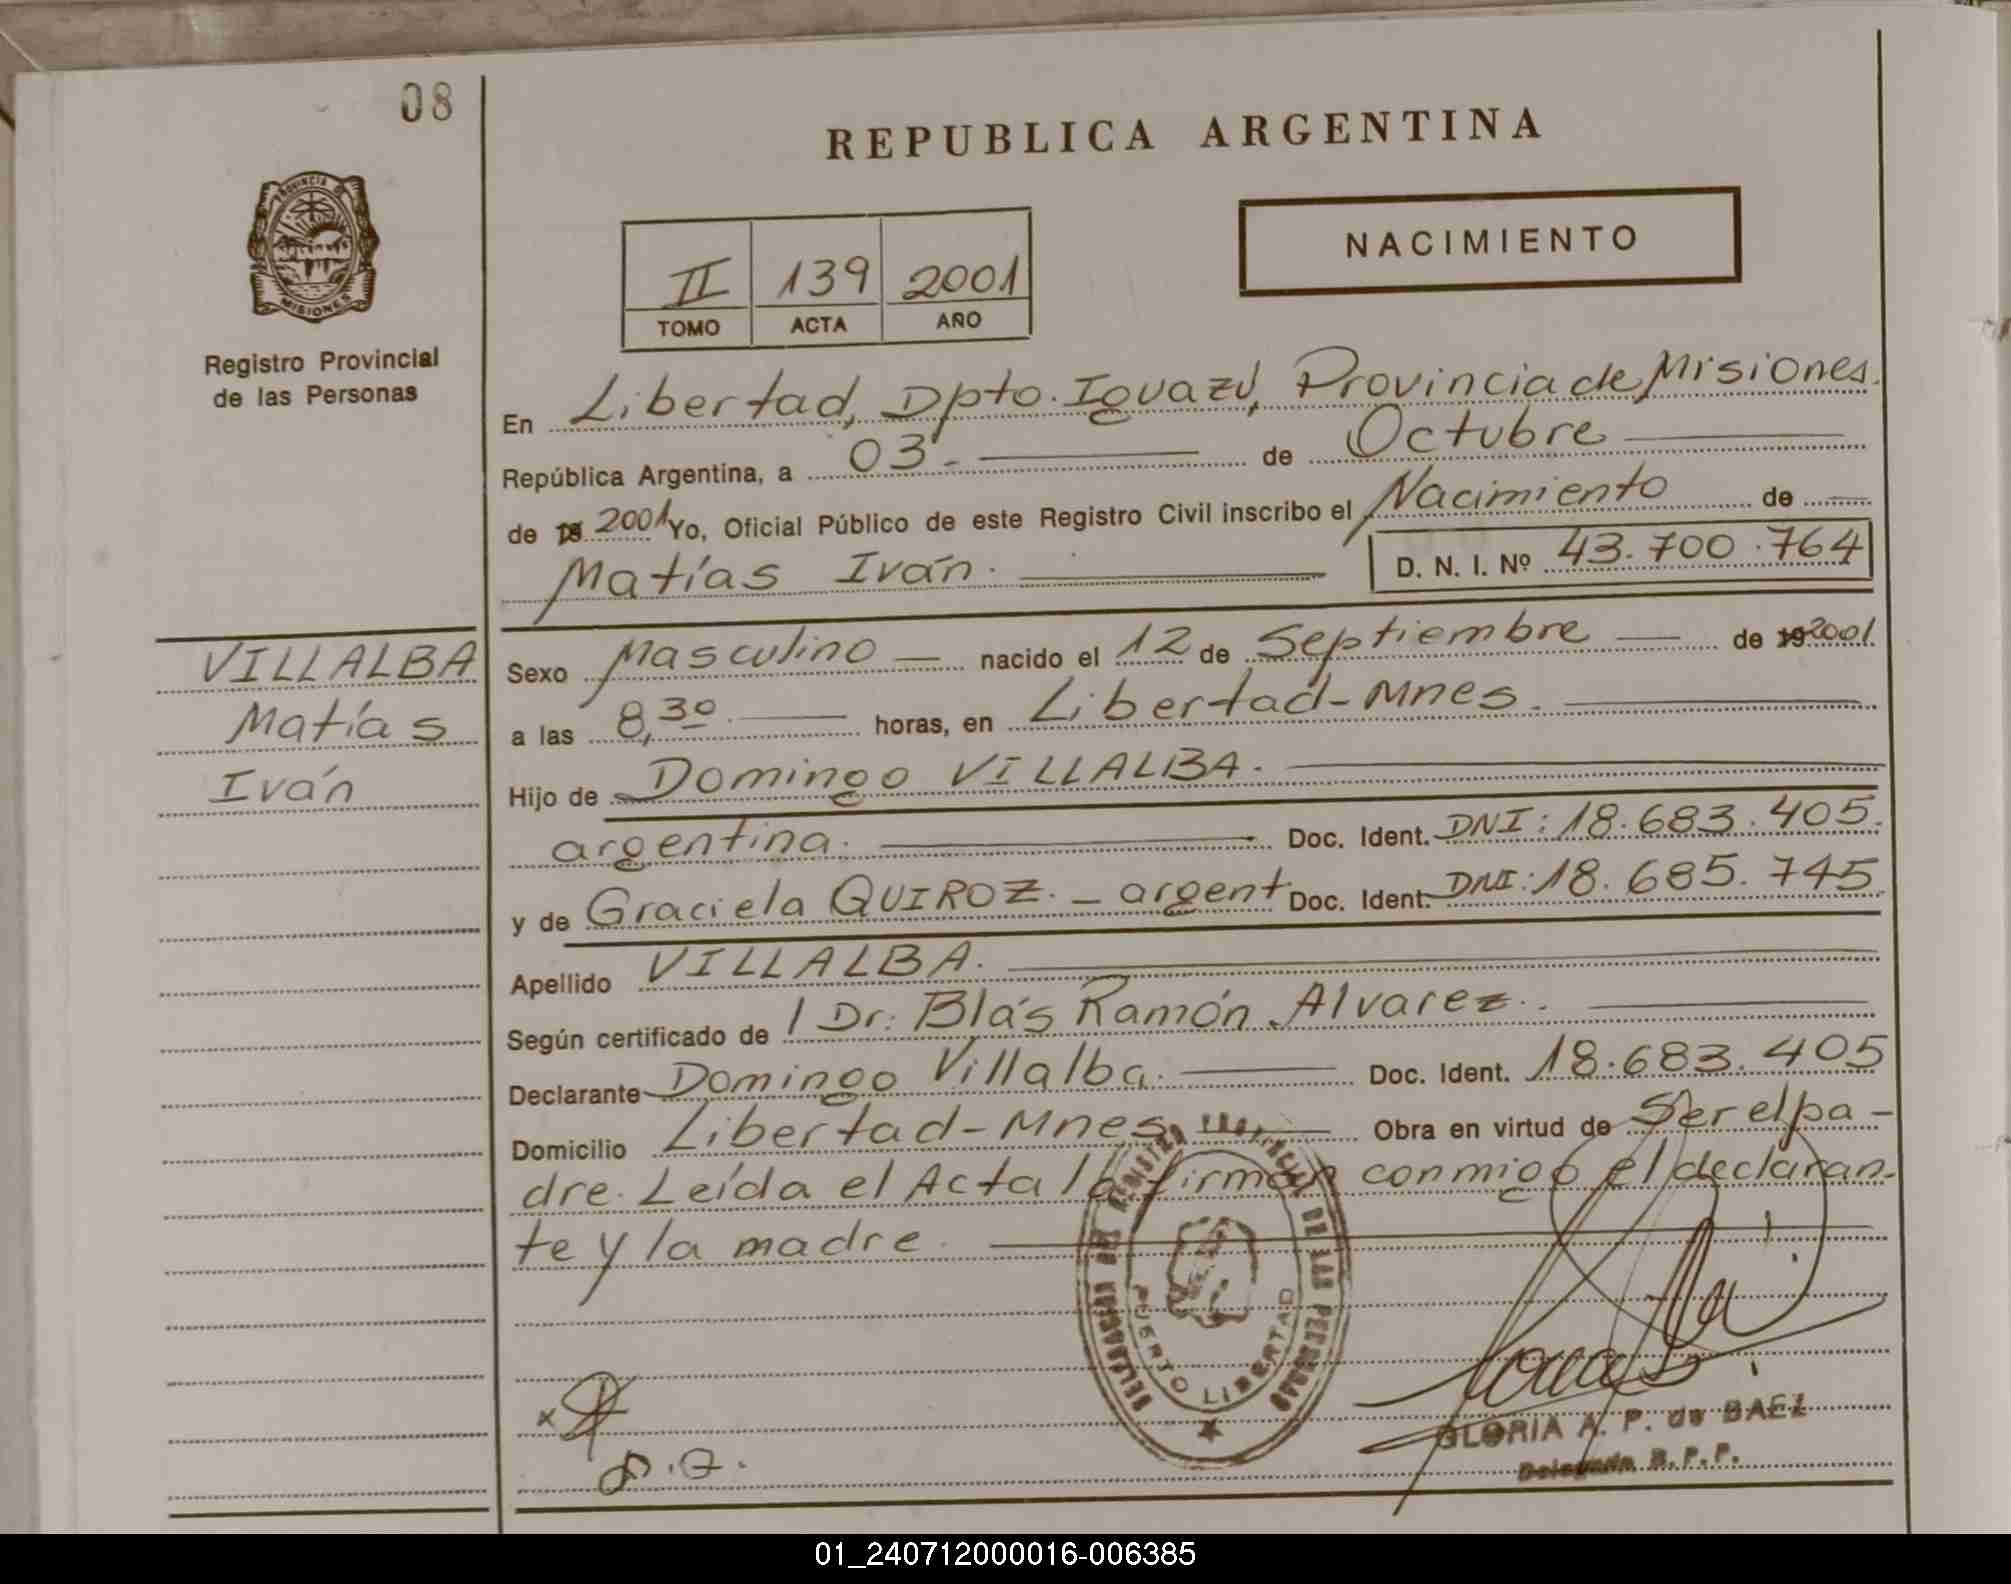 08
PROVINCIA DE
MISIONES
Registro Provincial
de las Personas
REPUBLICA ARGENTINA
NACIMIENTO
II 139 2001
TOMO ACTA AÑO
En Libertad, Dpto. Iguazú, Provincia de Misiones.
República Argentina, a 03.- de Octubre
de 19 2001 Yo, Oficial Público de este Registro Civil inscribo el Nacimiento de
Matías Iván. D. N. I. Nº 43.700.764
VILLALBA
Matías
Iván
Sexo Masculino nacido el 12 de Septiembre de 19 2001.
a las 8,30 horas, en Libertad-Mnes.
Hijo de Domingo VILLALBA.
argentina. Doc. Ident. DNI: 18.683.405.
y de Graciela QUIROZ. - argent Doc. Ident. DNI: 18.685.745
Apellido VILLALBA.
Según certificado de Dr: Blás Ramón Alvarez.
Declarante Domingo Villalba. Doc. Ident. 18.683.405
Domicilio Libertad-Mnes. Obra en virtud de Ser el pa-
dre. Leída el Acta la firman conmigo el declaran-
te y la madre.
DELEGACION DEL REGISTRO PROVINCIAL DE LAS PERSONAS
PUERTO LIBERTAD
GLORIA A. P. de BAEZ
Delegada R. P. P.
01_240712000016-006385